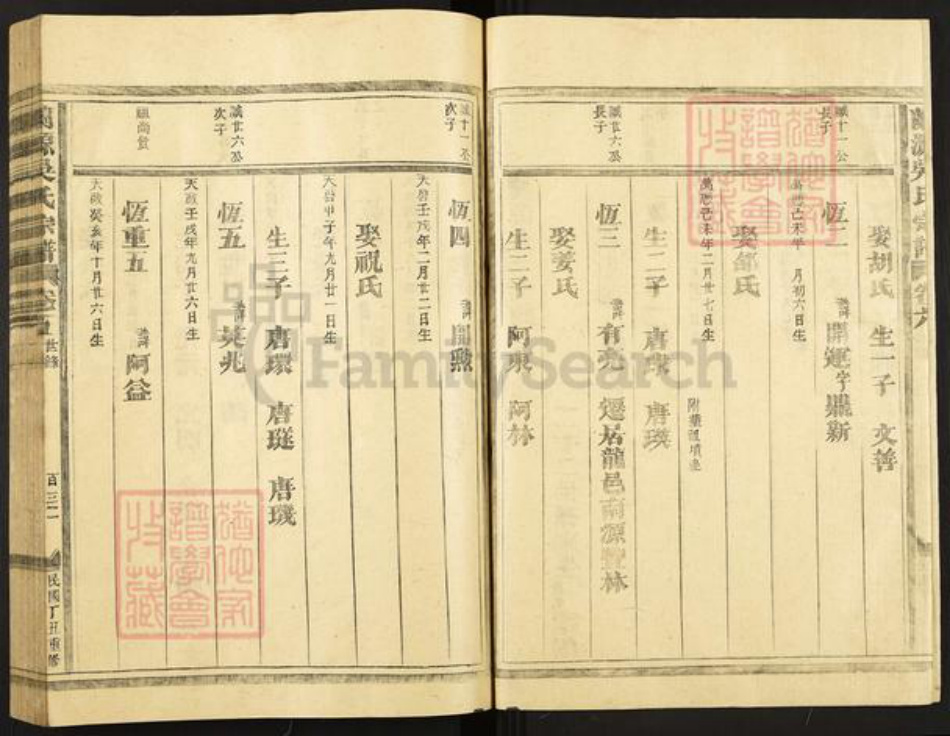 娶胡氏 生一子 文善
誠十一公長子
恆二 諱開運字鼎新
萬曆己未年 月初六日生
娶鄒氏
萬曆己未年二月廿七日生
附葬祖墳邊
生二子 唐 唐瑛
誠廿六公長子
恆三 諱有亮 遷居龍邑南源 林
娶姜氏
生二子 阿東 阿林
誠十一公次子
恆四 諱開勲
天啟壬戌年二月廿二日生
娶祝氏
天啟甲子年九月廿一日生
生三子 唐環 唐 唐璣
誠廿六公次子
恆五 諱英兆
天啟壬戌年九月廿六日生
恆重五 諱阿益
天啟癸亥年十月廿六日生
吳氏宗譜
世錄
百三二
民國丁丑重修
譜學會
收藏
FamilySearch